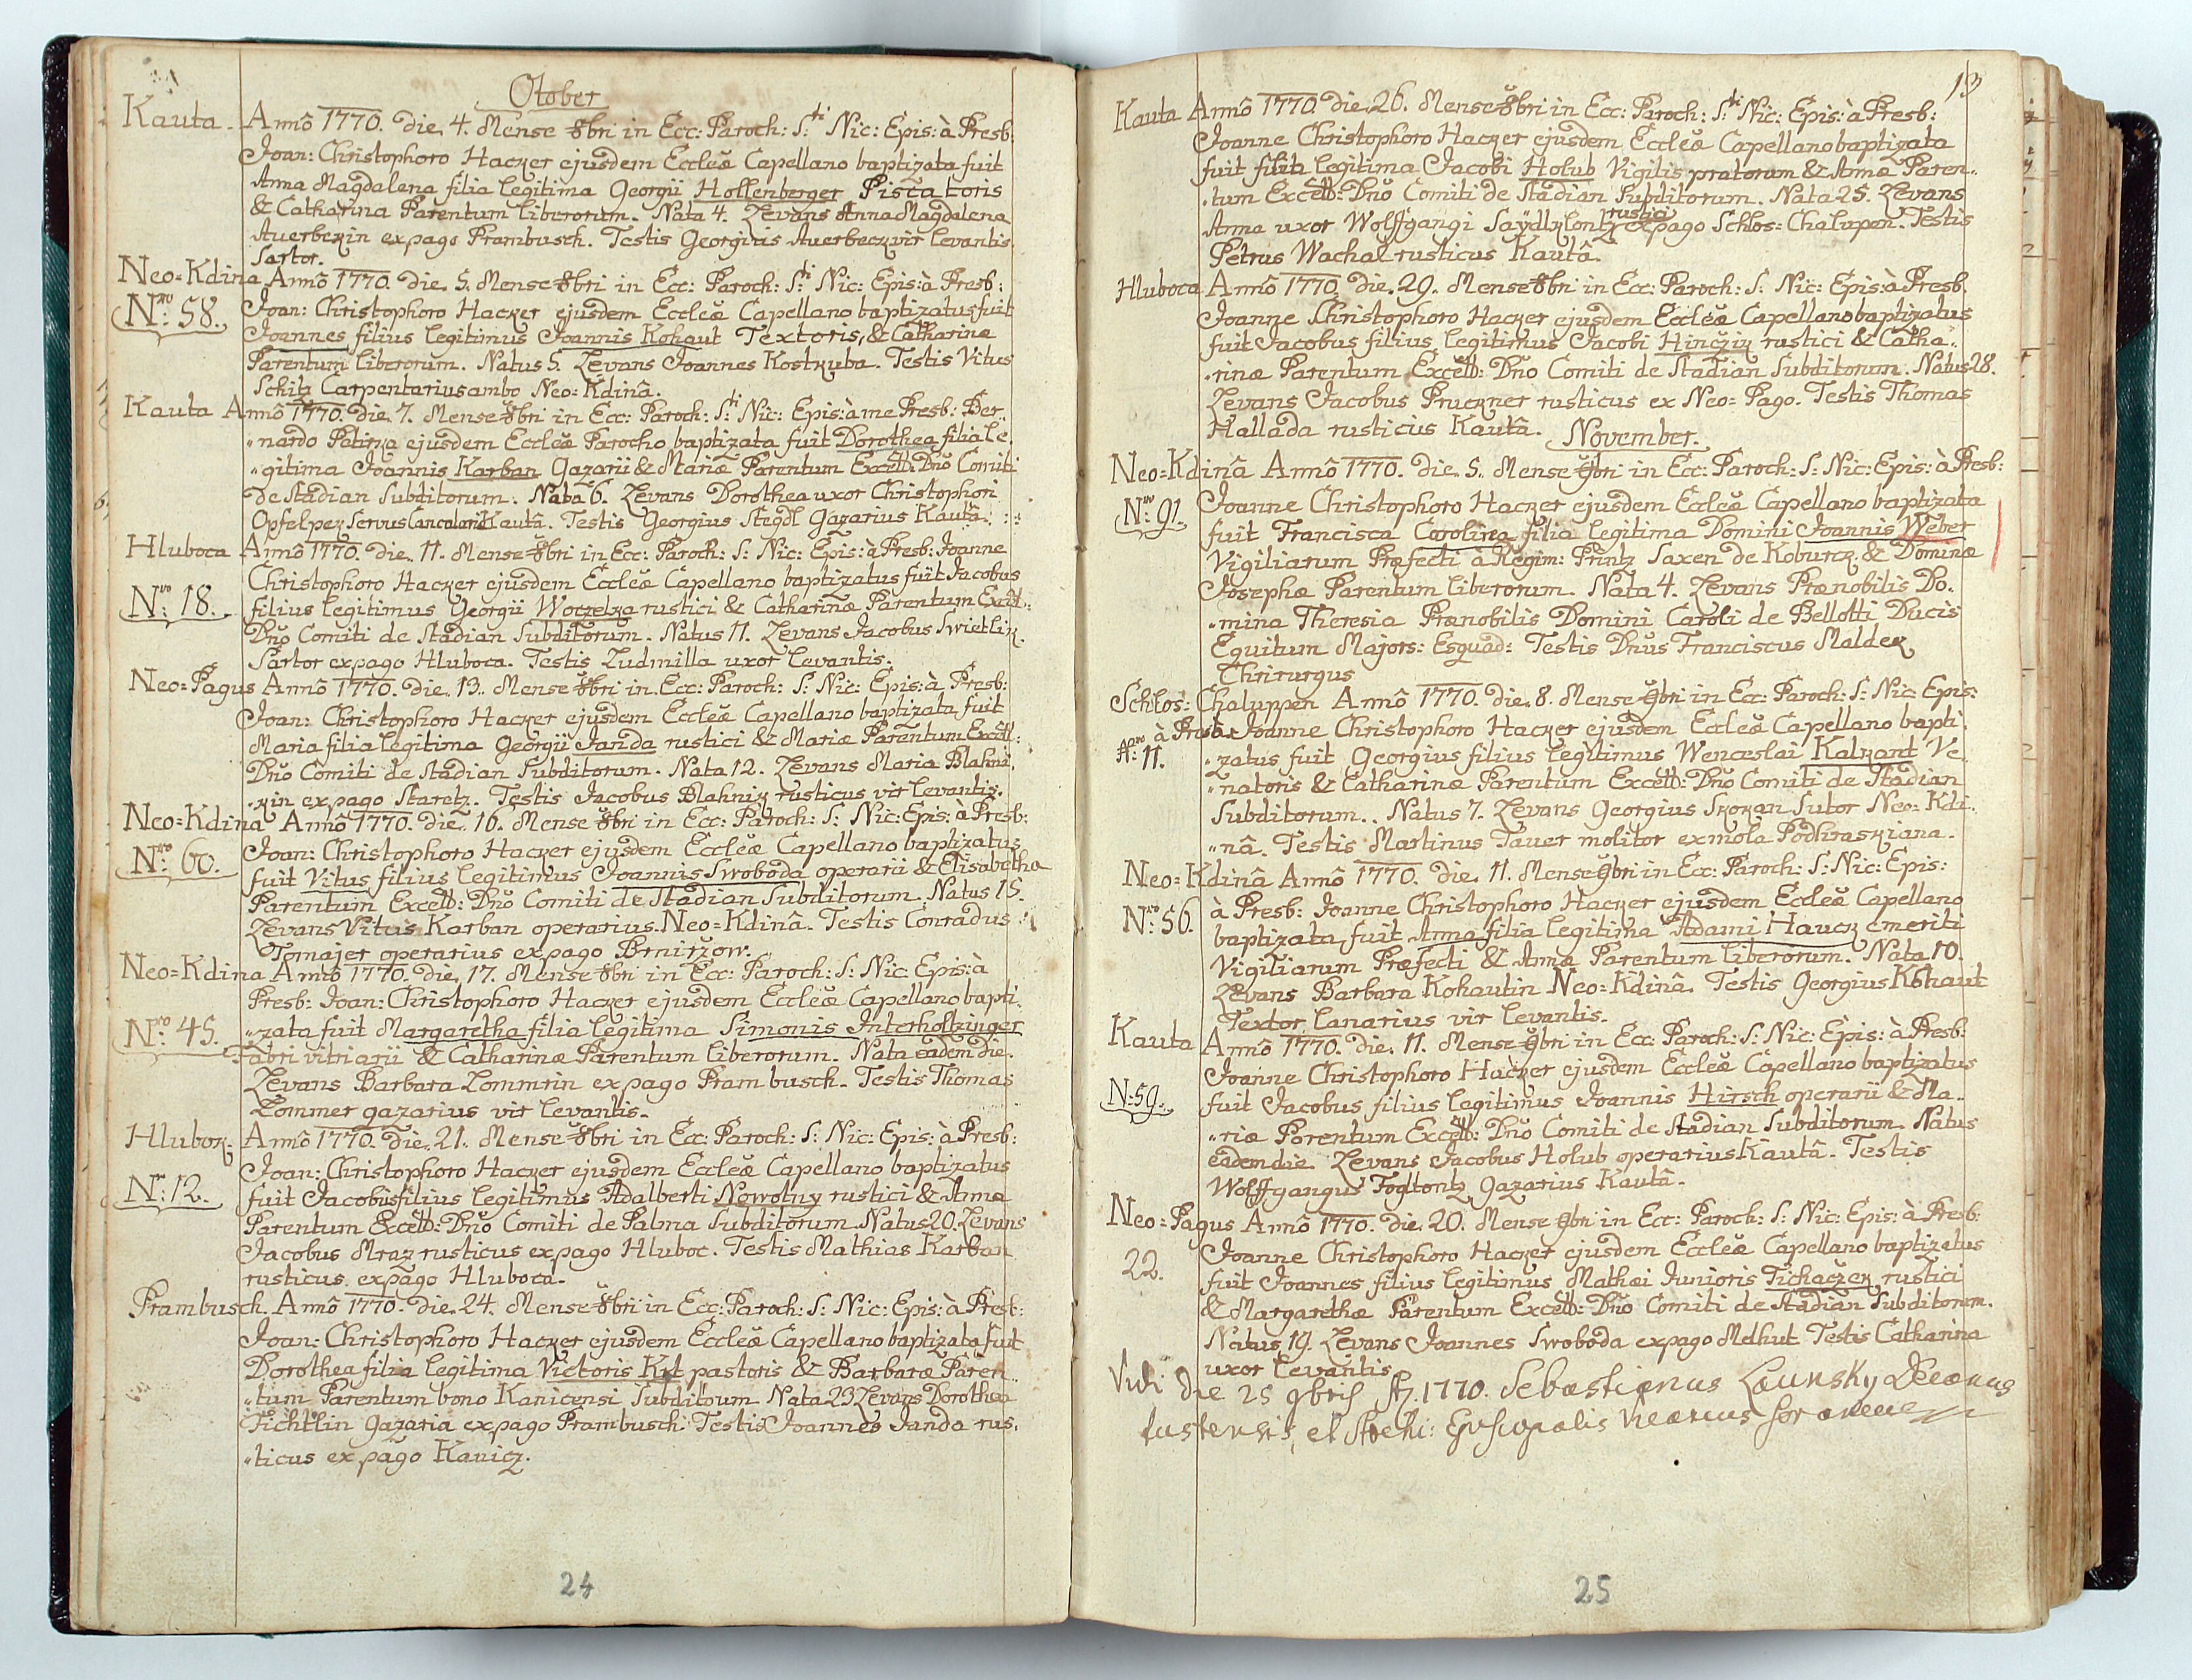 Otober
Kauta. Annô 1770. die. 4. Mense 8bri in Ecc: Paroch: S:ti Nic: Epis: à Presb:
Joan: Christophoro Hacker ejusdem Eccleæ Capellano baptizata fuit
Anna Magdalena filia legitima Georgii Hollenberger Piscatoris
& Catharina Parentum liberorum. Nata 4. Levans Anna Magdalena
Auerbekin ex pago Prambusch. Testis Georgius Auerbeck vir levantis
Sartor.
Neo=Kdina Annô 1770. die. 5. Mense 8bri in Ecc: Paroch: S:ti Nic: Epis: à Presb:
Nro: 58. Joan: Christophoro Hacker ejusdem Eccleæ Capellano baptizatus fuit
Joannes filius legitimus Joannis Kohaut Textoris, & Catharinæ
Parentum liberorum. Natus 5. Levans Joannes Kostruba. Testis Vitus
Schitz Carpentarius ambo Neo=Kdinâ.
Kauta Annô 1770. die. 7. Mense 8bri in Ecc: Paroch: S:ti Nic: Epis: à me Presb: Ber„
„nardo Patirka ejusdem Eccleæ Parocho baptizata fuit Dorothea filia le„
„gitima Joannis Karban Gazarii & Mariæ Parentum Excell: Dño Comiti
de Stadian Subditorum. Nata 6. Levans Dorothea uxor Christophori
Opfelpek Servus Cancelariæ Kautâ. Testis Georgius Stegdl Gazarius Kautâ.
Hluboca Annô 1770. die. 11. Mense 8bri in Ecc: Paroch: S: Nic: Epis: à Presb: Joanne
Christophoro Hacker ejusdem Eccleæ Capellano baptizatus fuit Jacobus
Nro: 18. filius legitimus Georgii Woczelka rustici & Catharinæ Parentum Excell:
Dño Comiti de Stadian Subditorum. Natus 11. Levans Jacobus Swietlik
Sartor ex pago Hluboca. Testis Ludmilla uxor levantis.
Neo=Pagus Annô 1770. die. 13. Mense 8bri in Ecc: Paroch: S: Nic: Epis: à Presb:
Joan: Christophoro Hacker ejusdem Eccleæ Capellano baptizata fuit
Maria filia legitima Georgii Janda rustici & Mariæ Parentum Excell:
Dño Comiti de Stadian Subditorum. Nata 12. Levans Maria Blahni„
„kin ex pago Staretz. Testis Jacobus Blahnik rusticus vir levantis.
Neo=Kdina Annô 1770. die. 16. Mense 8bri in Ecc: Paroch: S: Nic: Epis: à Presb:
Nro: 60. Joan: Christophoro Hacker ejusdem Eccleæ Capellano baptizatus
fuit Vitus filius legitimus Joannis Swoboda operarii & Elisabetha
Parentum Excell: Dño Comiti de Stadian Subditorum. Natus 15.
Levans Vitus Karban operarius Neo=Kdinâ. Testis Conradus
Tomajer operarius ex pago Brnirzow.
Neo=Kdina Annô 1770. die. 17. Mense 8bri in Ecc: Paroch: S: Nic: Epis: à
Presb: Joan: Christophoro Hacker ejusdem Eccleæ Capellano bapti„
Nro: 45. „zata fuit Margaretha filia legitima Simonis Interholtzinger
Fabri vitriarii & Catharinæ Parentum liberorum. Nata eadem die.
Levans Barbara Lommrin ex pago Prambusch. Testis Thomas
Lommer gazarius vir levantis.
Hlubok. Annô 1770. die. 21. Mense 8bri in Ecc: Paroch: S: Nic: Epis: à Presb:
Joan: Christophoro Hacker ejusdem Eccleæ Capellano baptizatus
Nr: 12. fuit Jacobus filius legitimus Adalberti Nowotny rustici & Annæ
Parentum Excell: Dño Comiti de Palma Subditorum. Natus 20. Levans
Jacobus Mraz rusticus ex pago Hluboc. Testis Mathias Karban
rusticus ex pago Hluboca.
Prambusch. Annô 1770. die. 24. Mense 8bri in Ecc: Paroch: S: Nic: Epis: à Presb:
Joan: Christophoro Hacker ejusdem Eccleæ Capellano baptizata fuit
Dorothea filia legitima Victoris Krt pastoris & Barbaræ Paren„
„tum Parentum bono Kanicensi Subditoum Nata 23 Levans Dorothea
Fichtlin gazaria ex pago Prambusch. Testis Joannes Janda rus„
„ticus ex pago Kanicz.
24
13
Kauta Annô 1770. die. 26. Mense 8bri in Ecc: Paroch: S:ti Nic: Epis: à Presb:
Joanne Christophoro Hacker ejusdem Eccleæ Capellano baptizata
fuit filia legitima Jacobi Holub Vigilis pratorum & Annæ Paren„
„tum Excell: Dño Comiti de Stadian Subditorum. Nata 25. Levans
Anna uxor Wolffgangi Saÿdlzlontz rustici ex pago Schlos=Chalupen. Testis
Petrus Wachal rusticus Kautâ.
Hluboca Annô 1770. die. 29. Mense 8bri in Ecc: Paroch: S: Nic: Epis: à Presb.
Joanne Christophoro Hacker ejusdem Eccleæ Capellano baptizatus
fuit Jacobus filius legitimus Jacobi Hinczik rustici & Catha„
„rinæ Parentum Excell: Dño Comiti de Stadian Subditorum. Natus 28.
Levans Jacobus Pruckner rusticus ex Neo=Pago. Testis Thomas
Hallada rusticus Kautâ.
November.
Neo=Kdinâ Annô 1770. die. 5. Mense 9bri in Ecc: Paroch: S: Nic: Epis: à Presb:
Nro: 91. Joanne Christophoro Hacker ejusdem Eccleæ Capellano baptizata
fuit Francisca Carolina filia legitima Domini Joannis Weber
Vigiliarum Præfecti à Regim: Printz Saxen de Koburck & Dominæ
Josephæ Parentum liberorum. Nata 4. Levans Prænobilis Do„
„mina Theresia Prænobilis Domini Caroli de Bellotti Ducis
Equitum Majors: Esquad: Testis Dñus Franciscus Maldek
Chrirurgus
Schlos: Chaluppen Annô 1770. die. 8. Mense 9bri in Ecc: Paroch: S: Nic: Epis:
à Presb: Joanne Christophoro Hacker ejusdem Eccleæ Capellano bapti„
Nro: 11. „zatus fuit Georgius filius legitimus Wenceslai Kalkant Ve„
„natoris & Catharinæ Parentum Excell: Dño Comiti de Stadian
Subditorum.. Natus 7. Levans Georgius Skokan Sutor Neo=Kdi„
„nâ. Testis Martinus Tauer molitor ex mola Podhraskiana.
Neo=Kdinâ Annô 1770. die. 11. Mense 9bri in Ecc: Paroch: S: Nic: Epis:
Nro: 56. à Presb: Joanne Christophoro Hacker ejusdem Eccleæ Capellano
baptizata fuit Anna filia legitima Adami Hauck emeriti
Vigiliarum Præfecti & Annæ Parentum liberorum. Nata 10.
Levans Barbara Kohautin Neo=Kdinâ. Testis Georgius Kohaut
Textor lanarius vir levantis.
Kauta Annô 1770. die. 11. Mense 9bri in Ecc: Paroch: S: Nic: Epis: à Presb:
Joanne Christophoro Hacker ejusdem Eccleæ Capellano baptizatus
N: 59. fuit Jacobus filius legitimus Joannis Hirsch operarii & Ma„
„riæ Parentum Excell: Dño Comiti de Stadian Subditorum. Natus
eadem die. Levans Jacobus Holub operarius Kautâ. Testis
Wolffgangus Fogltontz gazarius Kautâ.
Neo=Pagus Annô 1770. die. 20. Mense 9bri in Ecc: Paroch: S: Nic: Epis: à Presb:
22. Joanne Christophoro Hacker ejusdem Eccleæ Capellano baptizatus
fuit Joannes filius legitimus Mathæi Junioris Tichaczek rustici
& Margarethæ Parentum Excell: Dño Comiti de Stadian Subditorum.
Natus 19. Levans Joannes Swoboda ex pago Melhut. Testis Catharina
uxor levantis
Vidi die 25 9bris 1770. Sebastianus Launsky Decanus
Tustensis, et Episcopalis Vicarius foraneus
25